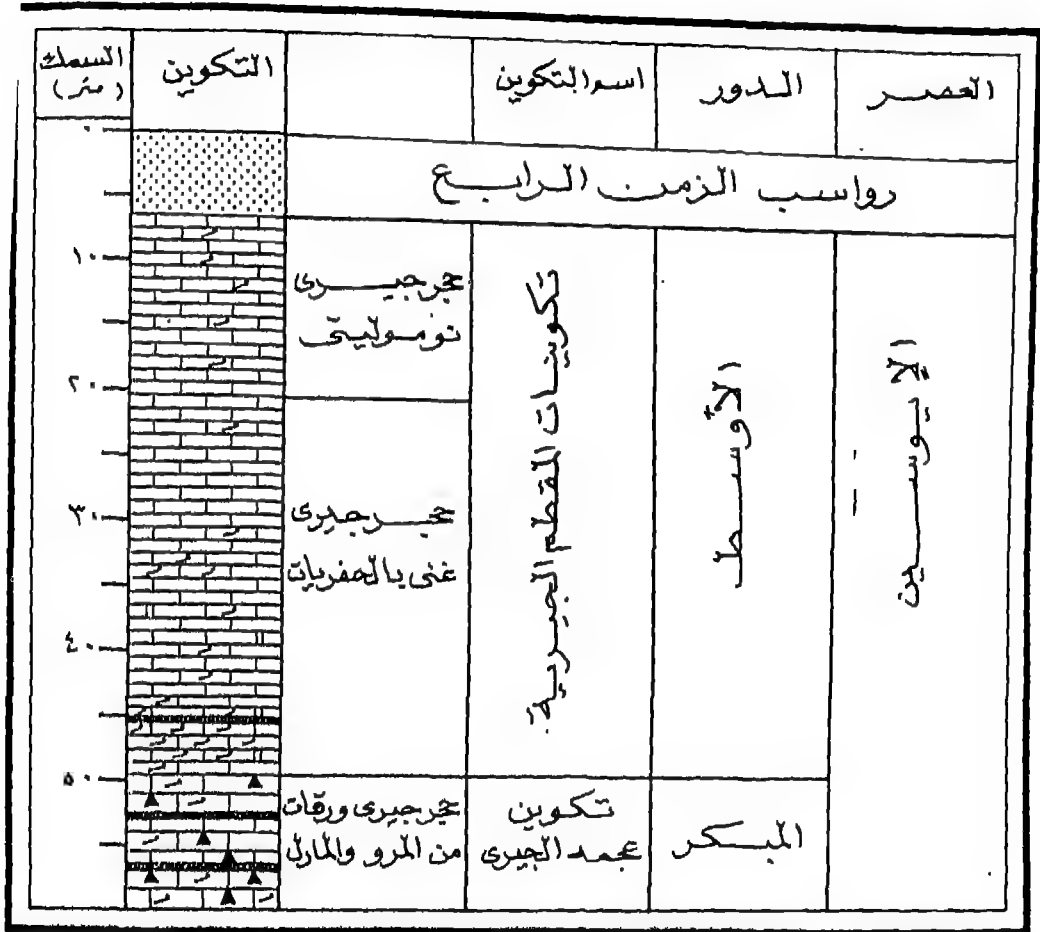 العصر
الدور
اسم التكوين
التكوين
السمك
(متر)
رواسب الزمن الرابع
الإيوسين
الأوسط
تكوينات المقطم الجيرية
حجر جيرى
نوموليتى
حجر جيرى
غنى بالحفريات
المبكر
تكوين
عجمد الجيرى
حجر جيرى ورقات
من المرو والمارل
٠
١٠
٢٠
٣٠
٤٠
٥٠